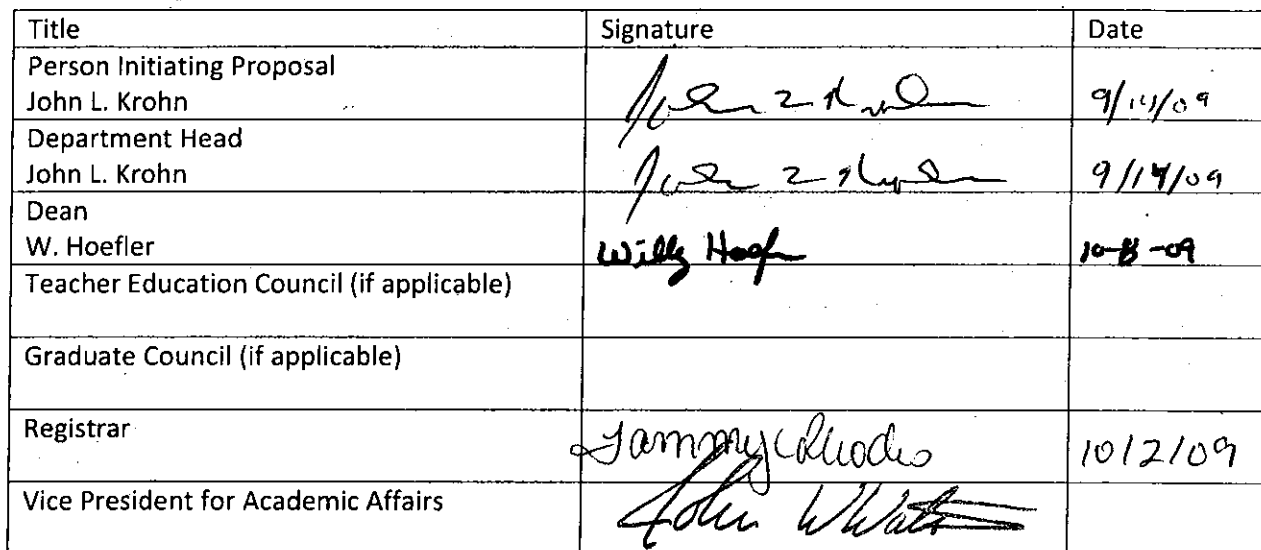 Title Signature Date
Person Initiating Proposal
John L. Krohn John L Krohn 9/14/09
Department Head
John L. Krohn John L Krohn 9/14/09
Dean
W. Hoefler Willy Hoefler -09
Teacher Education Council (if applicable)
Graduate Council (if applicable)
Registrar Tammy Rhodes 10/2/09
Vice President for Academic Affairs John W Watson